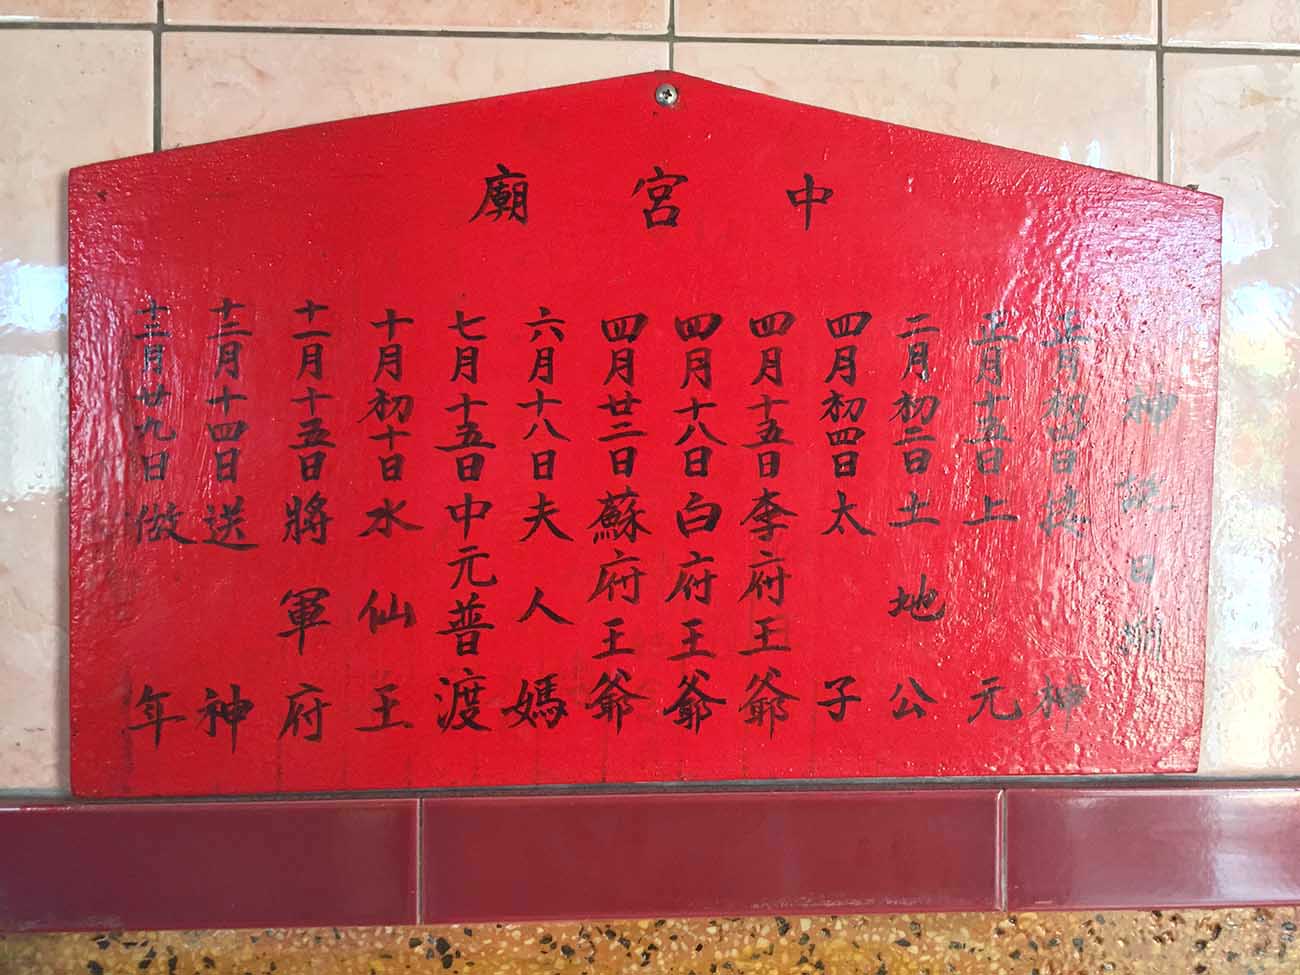 中宮廟
神誕日
正月初四日接神
正月十五日上元
二月初二日土地公
四月初四日太子
四月十五日李府王爺
四月十八日白府王爺
四月廿二日蘇府王爺
六月十八日夫人媽
七月十五日中元普渡
十月初十日水仙王
十一月十五日將軍府
十二月十四日送神
十二月廿九日做年